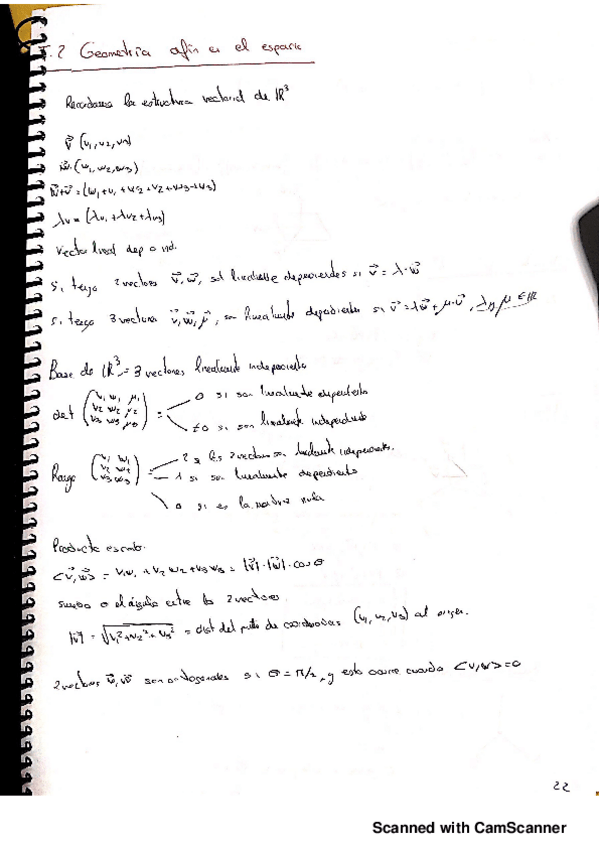 I.2 Geometría afín en el espacio
Recordamos la estructura vectorial de ℝ³
v⃗ (v₁,v₂,v₃)
w⃗ (w₁,w₂,w₃)
w⃗+v⃗ = (w₁+v₁+w₂+v₂+w₃+v₃)
λv = (λv₁+λv₂+λv₃)
Vector lineal dep o ind.
Si tengo 2 vectores v⃗, w⃗, son linealmente dependientes si v⃗ = λ·w⃗
Si tengo 3 vectores v⃗, w⃗, μ⃗, son linealmente dependientes si v⃗ = λw⃗ + μ·v⃗, λ y μ ∈ ℝ
Base de ℝ³ = 3 vectores linealmente independiente
v₁ w₁ μ₁ 0 si son linealmente dependiente
det v₂ w₂ μ₂ =
v₃ w₃ μ₃ ≠0 si son linealmente independiente
v₁ w₁ 2 si los 2 vectores son linealmente independientes.
Rango v₂ w₂ = 1 si son linealmente dependiente
v₃ w₃ 0 si es la matriz nula
Producto escalar.
<v⃗,w⃗> = v₁w₁ + v₂w₂ + v₃w₃ = |v⃗|·|w⃗|·cos θ
siendo θ el ángulo entre los 2 vectores
|v⃗| = √v₁²+v₂²+v₃² = dist del punto de coordenadas (v₁,v₂,v₃) al origen.
2 vectores v⃗, w⃗ son ortogonales si θ = π/2, y esto ocurre cuando <v,w> = 0
22
Scanned with CamScanner